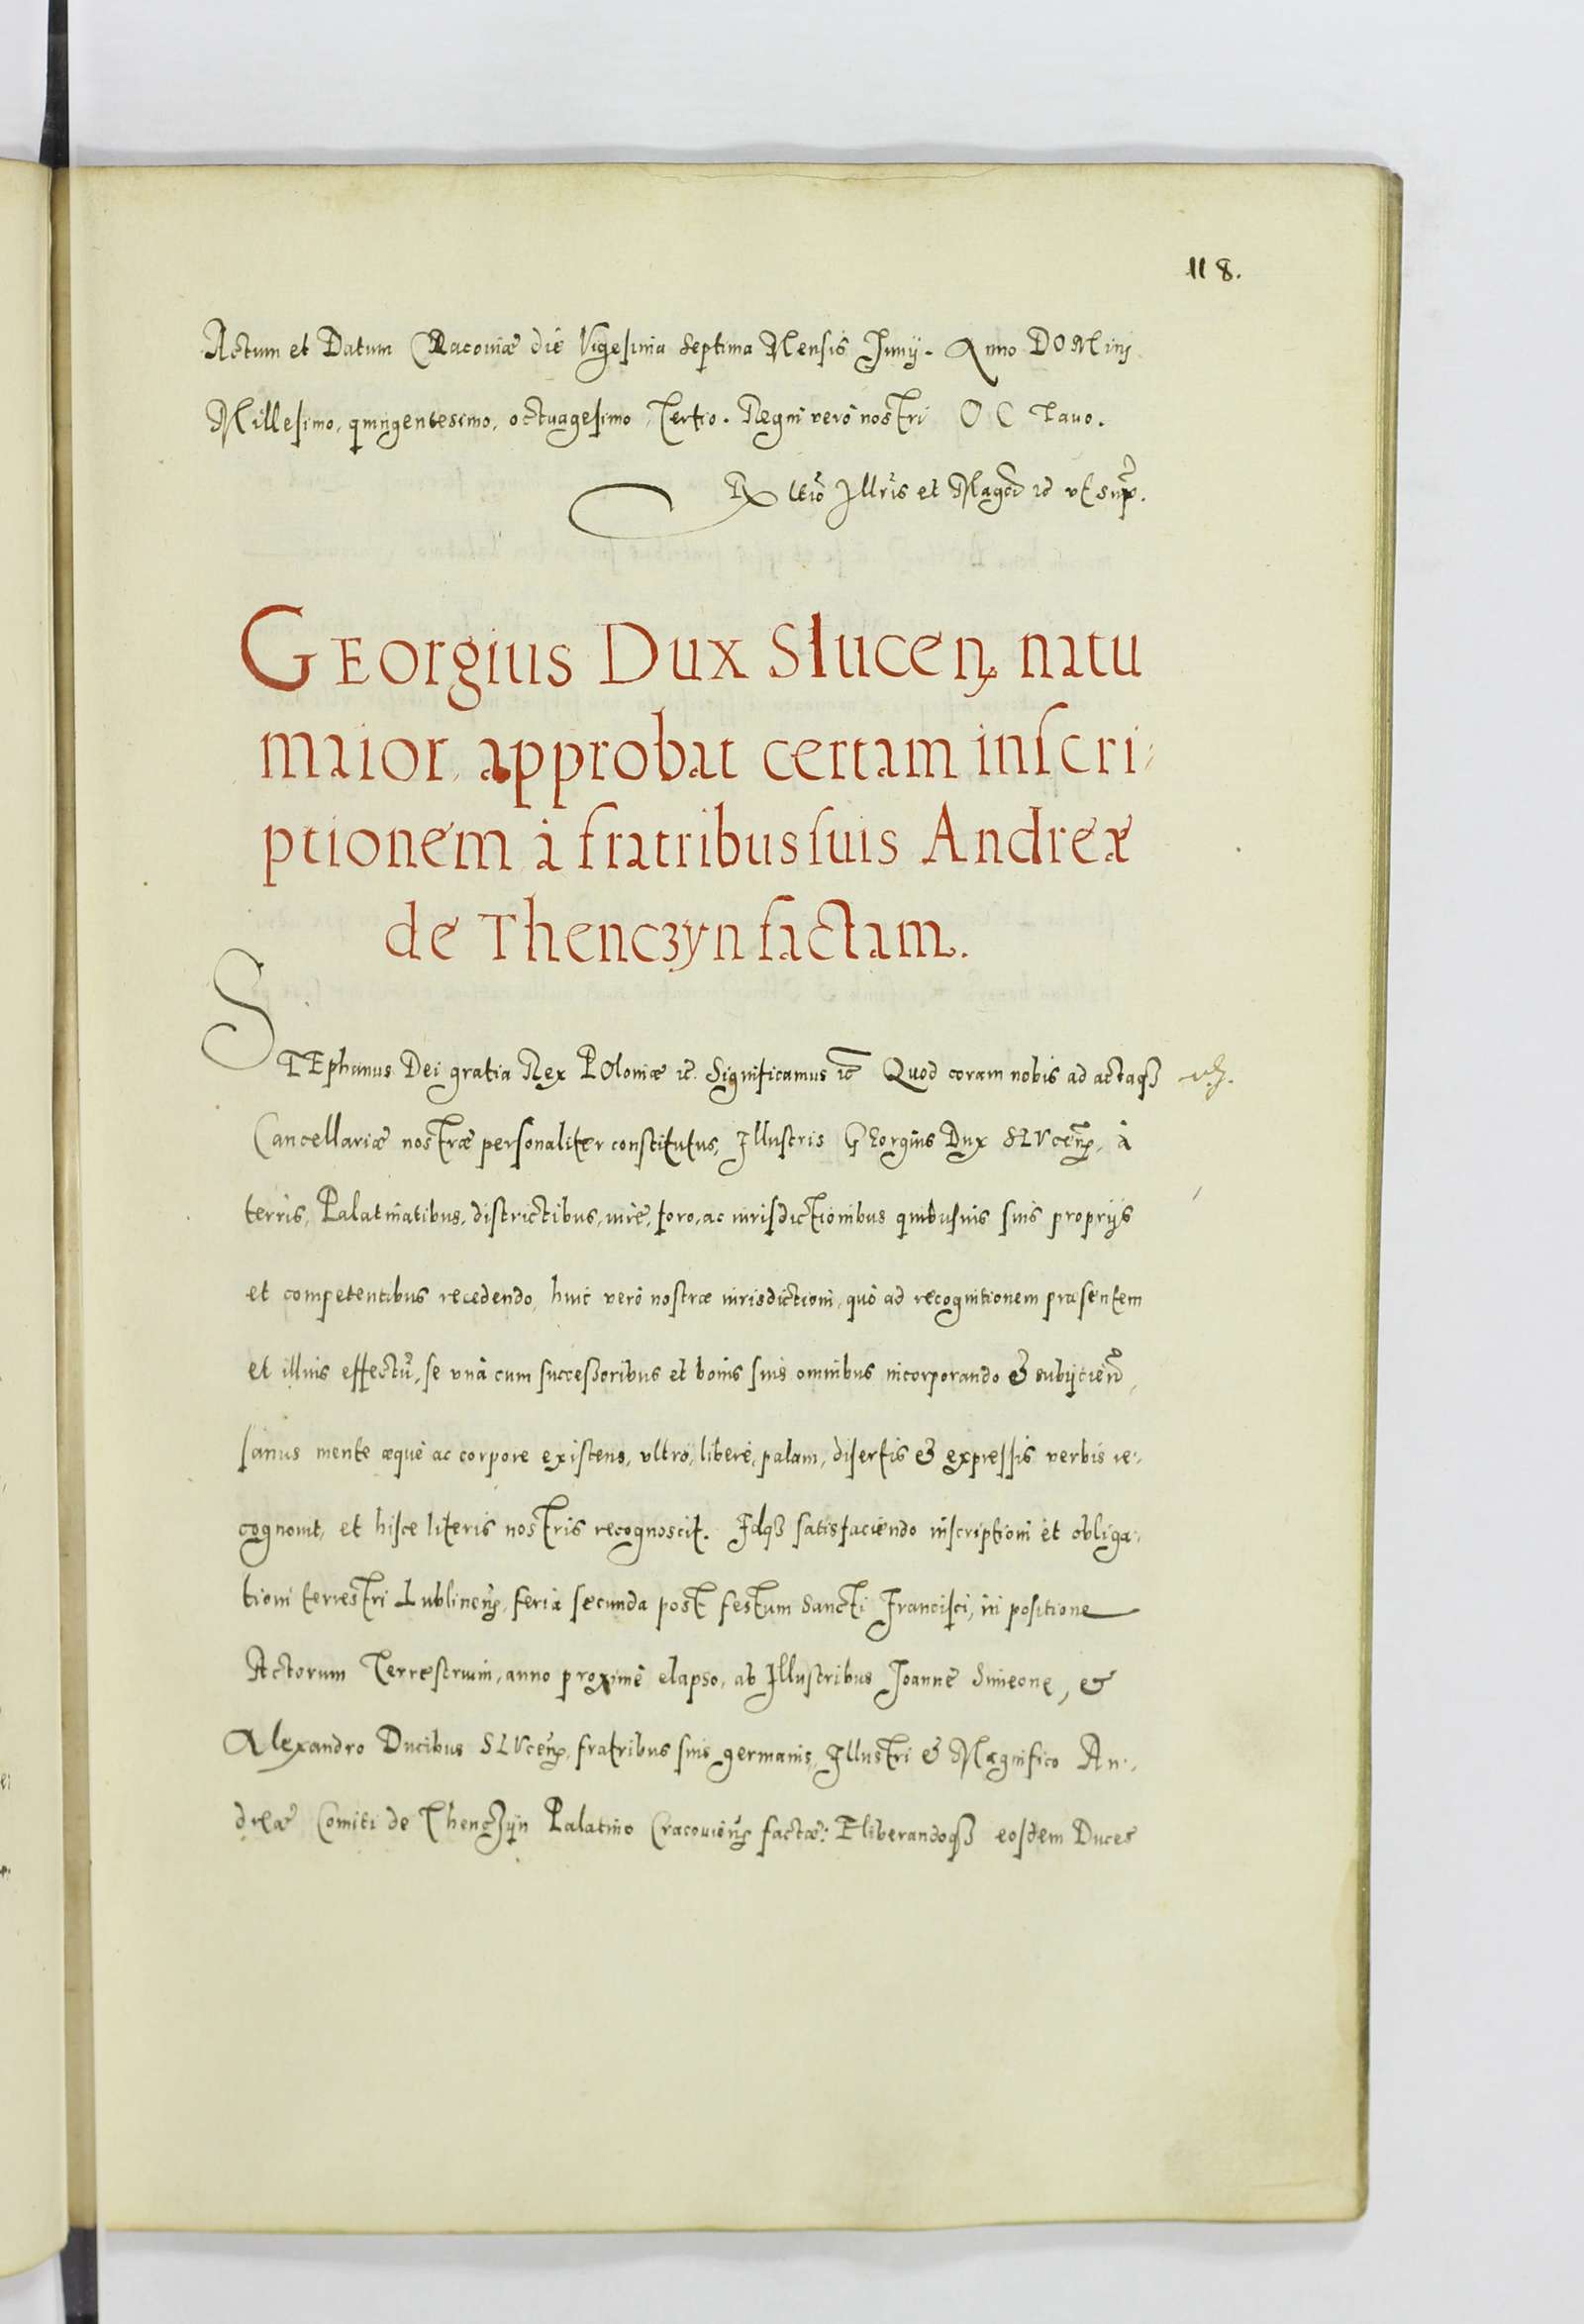 118.
Actum et Datum CRacouiæ die Vigesima Septima Mensis Junij. Anno DOMinj
Millesimo, quingentesimo, octuagesimo, Tertio. Regni verò nostri OCTauo.
Ex Illris et Magcı ıc vt supr.
GEorgius Dux Slucen. natu
maior, approbat certam inscri-
ptionem à fratribus suis Andreæ
de Thenczyn factam.
STEphanus Dei gratia Rex POloniæ ıc. Significamus ıc Quod coram nobis ad actaq3
Cancellariæ nostræ personaliter constitutus, Illustris GEorgius Dux SLVcen., à
terris, Palatinatibus, districtibus, iure, foro, ac iurisdictionibus quibusuis suis proprijs
et competentibus recedendo, huic verò nostræ iurisdictioni, quò ad recognitionem præsentem
et illius effectũ, se vnà cum successoribus et bonis suis omnibus incorporando & subijcien.,
sanus mente æquè ac corpore existens, vltrò, liberè, palam, disertis & expressis verbis re-
cognouit, et hisce literis nostris recognoscit. Idq3 satisfaciendo inscriptioni et obliga-
tioni terrestri Lublinen., feria secunda post festum Sancti Francisci, in positione
Actorum Terrestrium, anno proximè elapso, ab Illustribus Joanne Simeone, &
Alexandro Ducibus SLVcen., fratribus suis germanis, Illustri & Magnifico An-
dreæ Comiti de Thenczyn Palatino Cracouien. factæ: Eliberandoq3 eosdem Duces